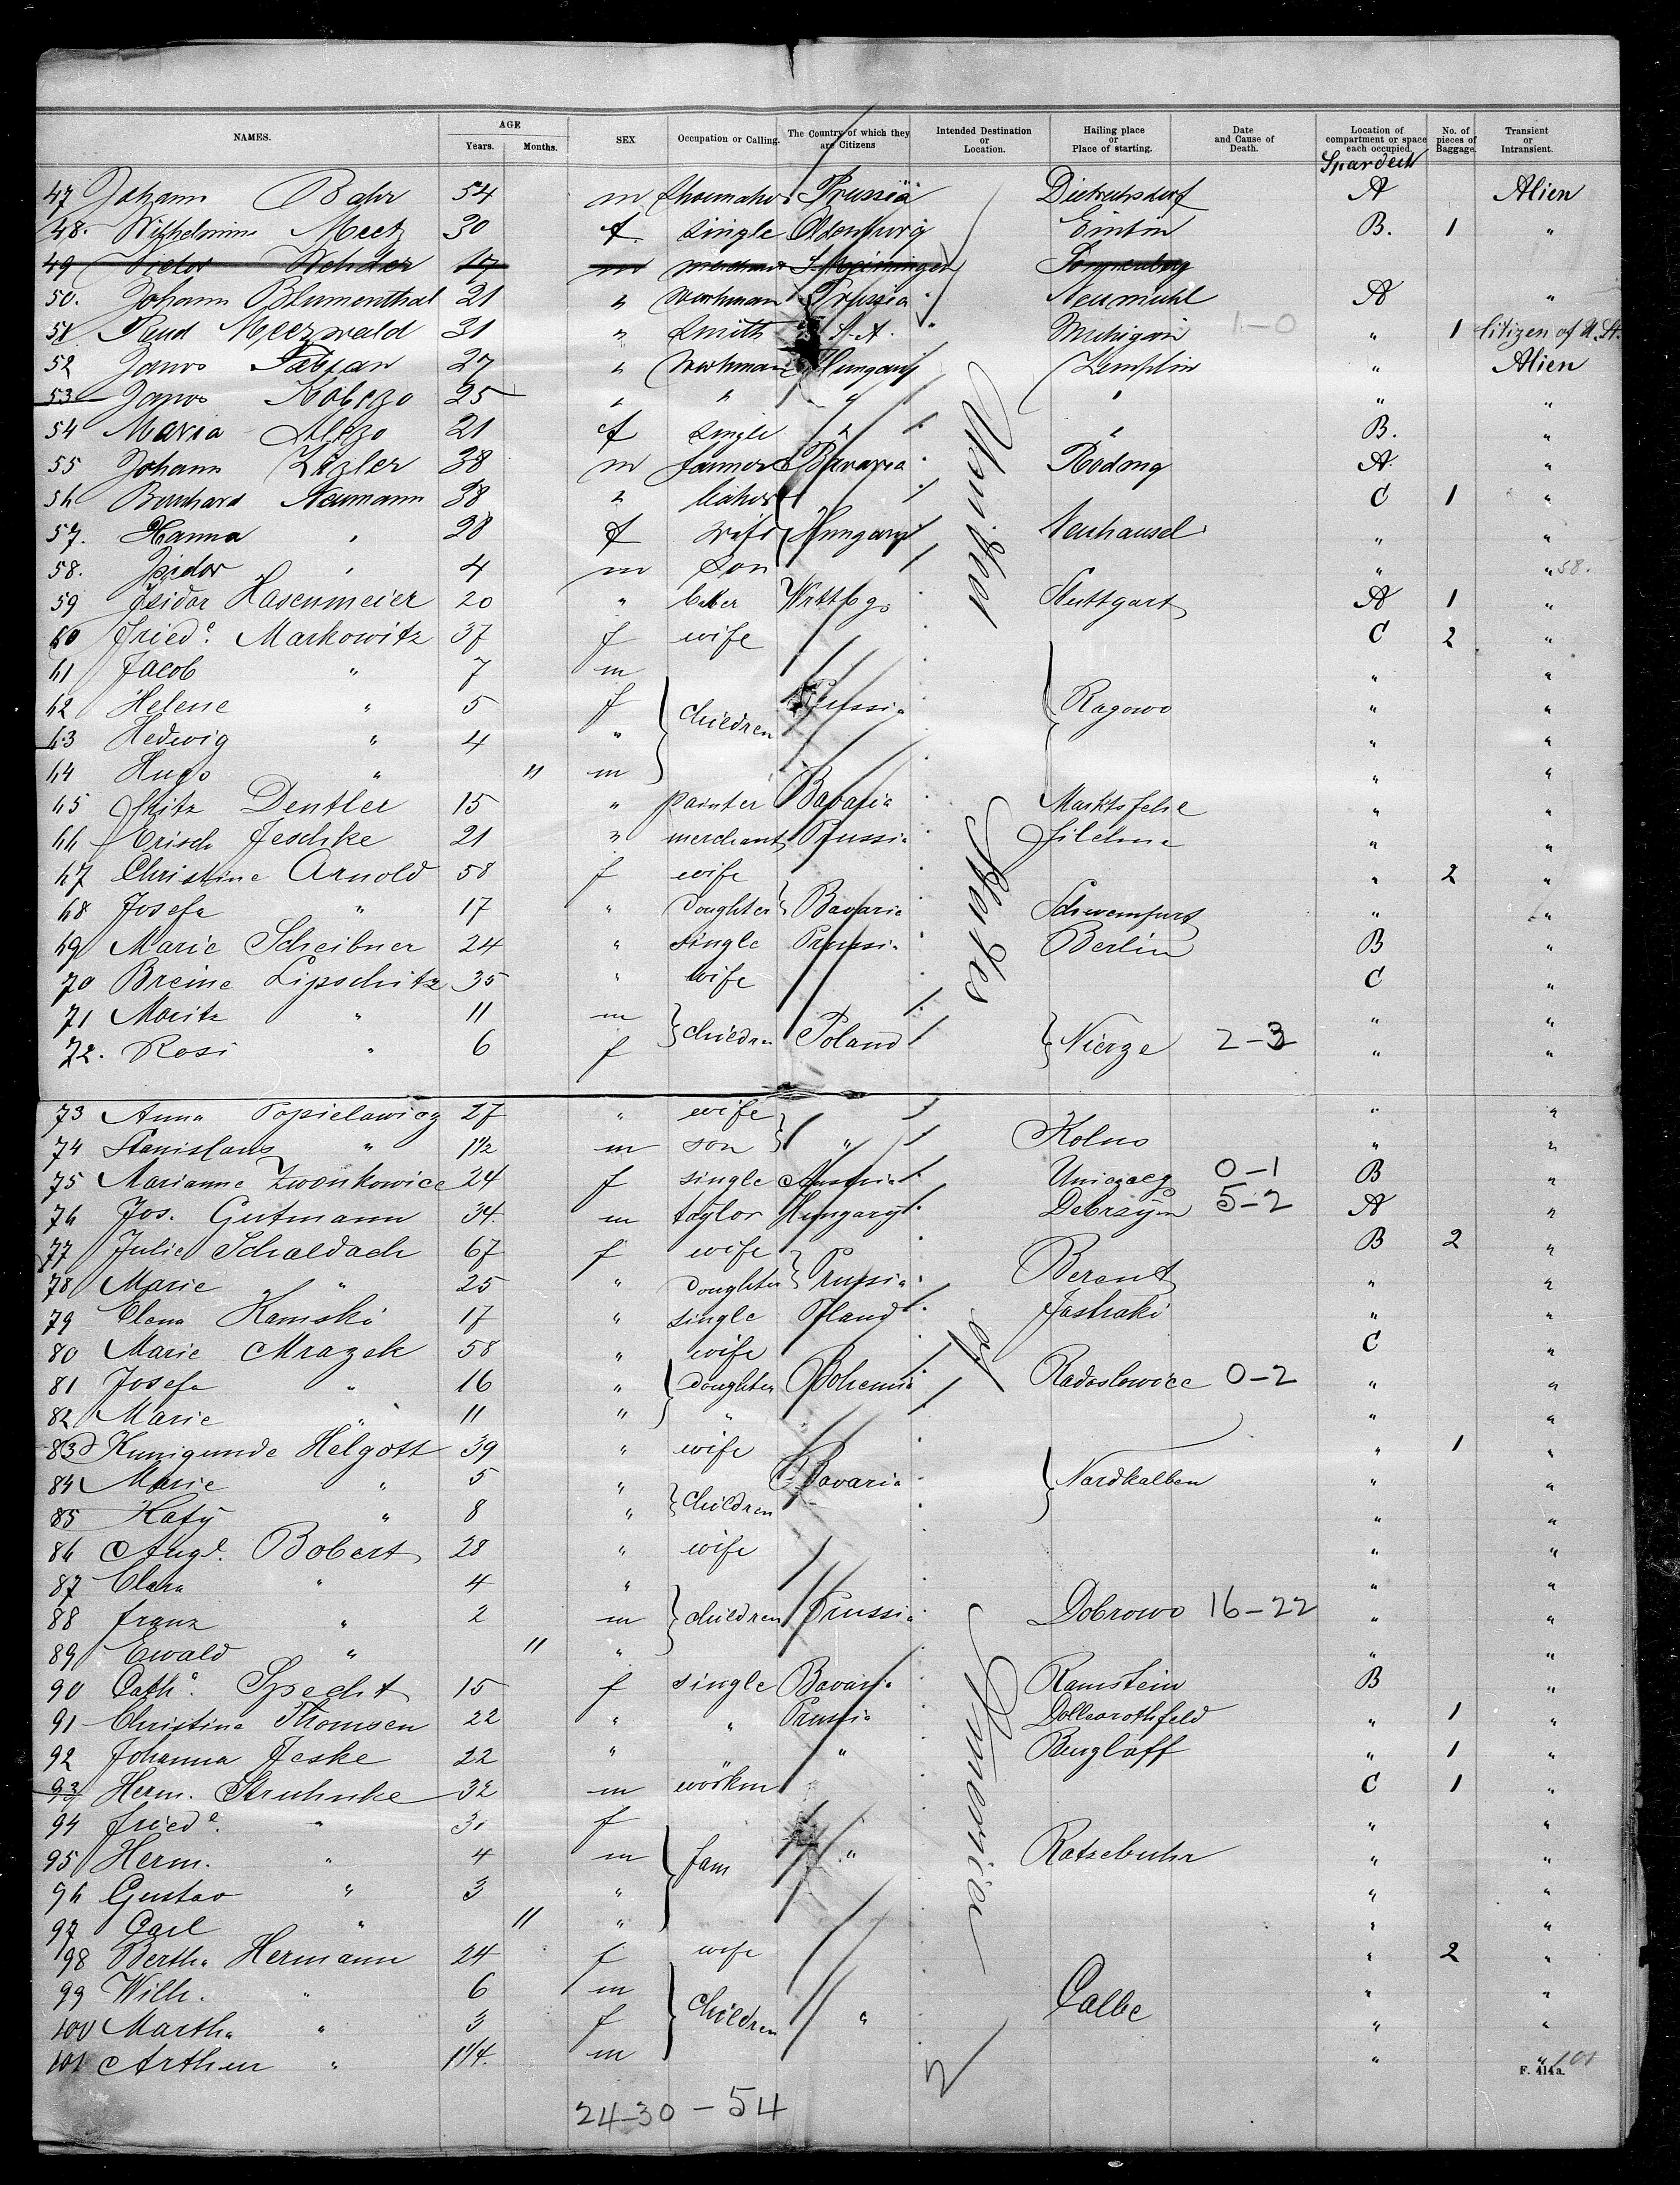 NAMES. AGE Years. Months. SEX Occupation or Calling. The Country of which they are Citizens Intended Destination or Location. Hailing place or Place of starting. Date and Cause of Death. Location of compartment or space each occupied. No. of pieces of Baggage. Transient or Intransient.
47 Johann Bahr 54 m Prussia A Alien
48. Meetz 30 f single Oldenburg Eutin B. 1 "
49 17 m Sonnenberg
50. Johann Blumenthal 21 " workman Prussia Neumühl A "
51 Meerwald 31 " Smith S. A. " Michigan 1-0 " 1 Citizen of U. St.
52 Janos Fabian 27 " workman Hungary Zemplin " Alien
53 Janos 25 " " " " " "
54 Maria 21 f single " " B. "
55 Johann 38 m farmer Bavaria Roding A. "
56 Bernhard Neumann 38 " C 1 "
57. Hanna " 28 f wife Hungary Neuhausel " "
58. Isidor " 4 m son " " 58.
59 Isidor Hasenmeier 20 " Stuttgart A 1 "
60 Fried.e Markowitz 37 f wife C 2 "
61 Jacob " 7 m " "
62 Helene " 5 f children Prussia Ragowo " "
63 Hedwig " 4 " " "
64 Hugo " 11 m " "
65 Fritz Dentler 15 " painter Bavaria " "
66 Jeschke 21 " merchant Prussia Filehne " "
67 Christine Arnold 58 f wife " 2 "
68 Josefa " 17 " Doughter Bavaria Schweinfurt " "
69 Marie Scheibner 24 " single Prussia Berlin B "
70 Breine Lipschitz 35 " wife C "
71 Moritz " 11 m children Poland Nierze 2-3 " "
72. Rosi " 6 f " "
73 Anna Popielawicz 27 " wife " "
74 Stanislaus " 1 1/2 m son " Kolno " "
75 Marianne Zwonkowice 24 f single Austria 0-1 B "
76 Jos. Gutmann 34. m taylor Hungary 5-2 A "
77 Julie Schaldach 67 f wife B 2 "
78 Marie " 25 " Doughter Prussia Berent " "
79 Elena Kamski 17 " single Pland " "
80 Marie Mrazek 58 " wife C "
81 Josefa " 16 " Doughter Bohemia Radoslowice 0-2 " "
82 Marie " 11 " " " "
83 Kunigunde Helgott 39 " wife " 1 "
84 Marie " 5 " children Bavaria Nardkalben " "
85 Katy " 8 " " "
86 Aug.e Bobert 28 " wife " "
87 Clara " 4 " " "
88 Franz " 2 m children Prussia Dobrowo 16-22 " "
89 Ewald " 11 " " "
90 Cath.a Specht 15 f single Bavaria Ramstein B "
91 Christine Thomsen 22 " " Prussia Dollearothfeld " 1 "
92 Johanna Jeske 22 " " " " 1 "
93 Herm. Struhnke 32 m workm C 1 "
94 Fried.e " f " "
95 Herm. " 4 m fam " Ratzebuhr " "
96 Gustav " 3 " " "
97 Carl " 11 " " "
98 Bertha Hermann 24 f wife " 2 "
99 Wilh. " 6 m " "
100 Martha " 3 f children " Calbe " "
101 Arthur " 1 1/4. m " " 101
United States of America
F. 414a.
24-30-54